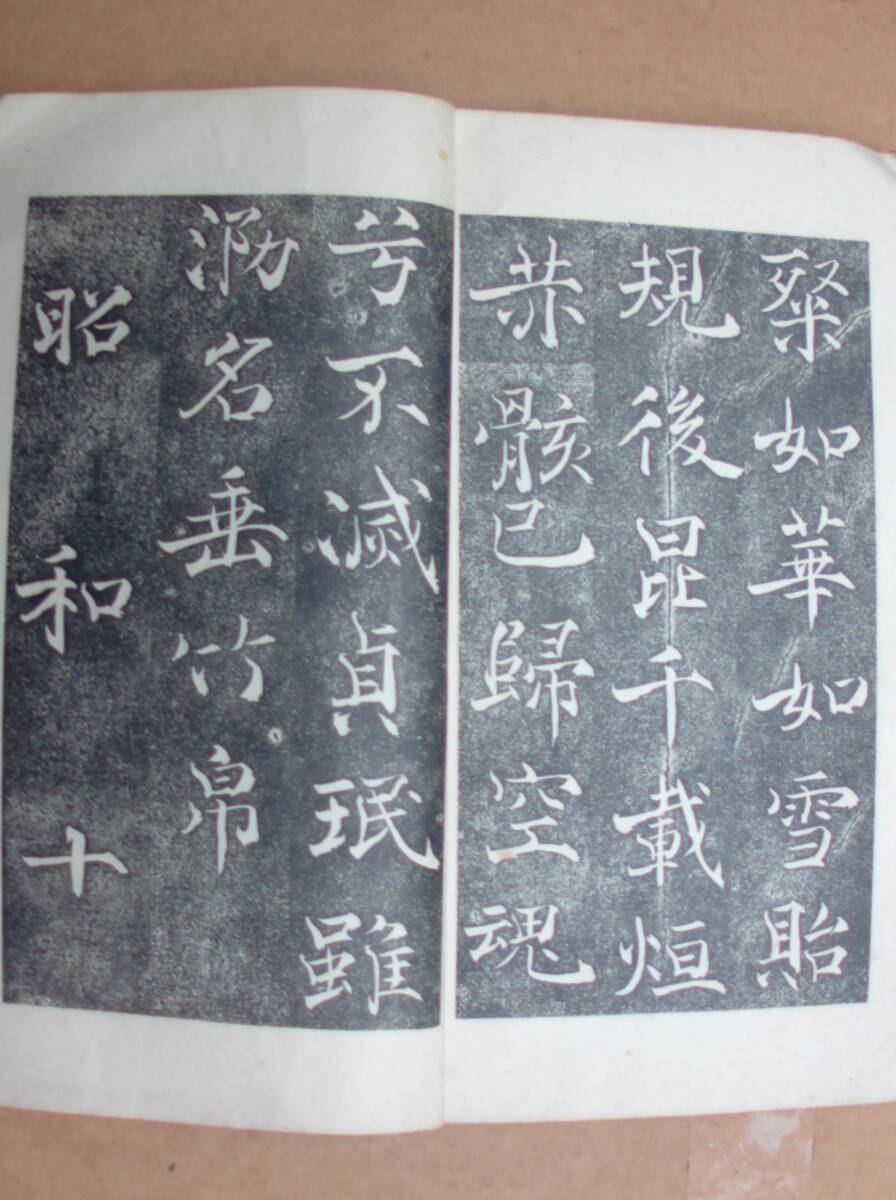 粲如華如雪貽
規後昆千載烜
骸已歸空魂
兮不滅貞珉雖
泐名垂竹帛
昭和十